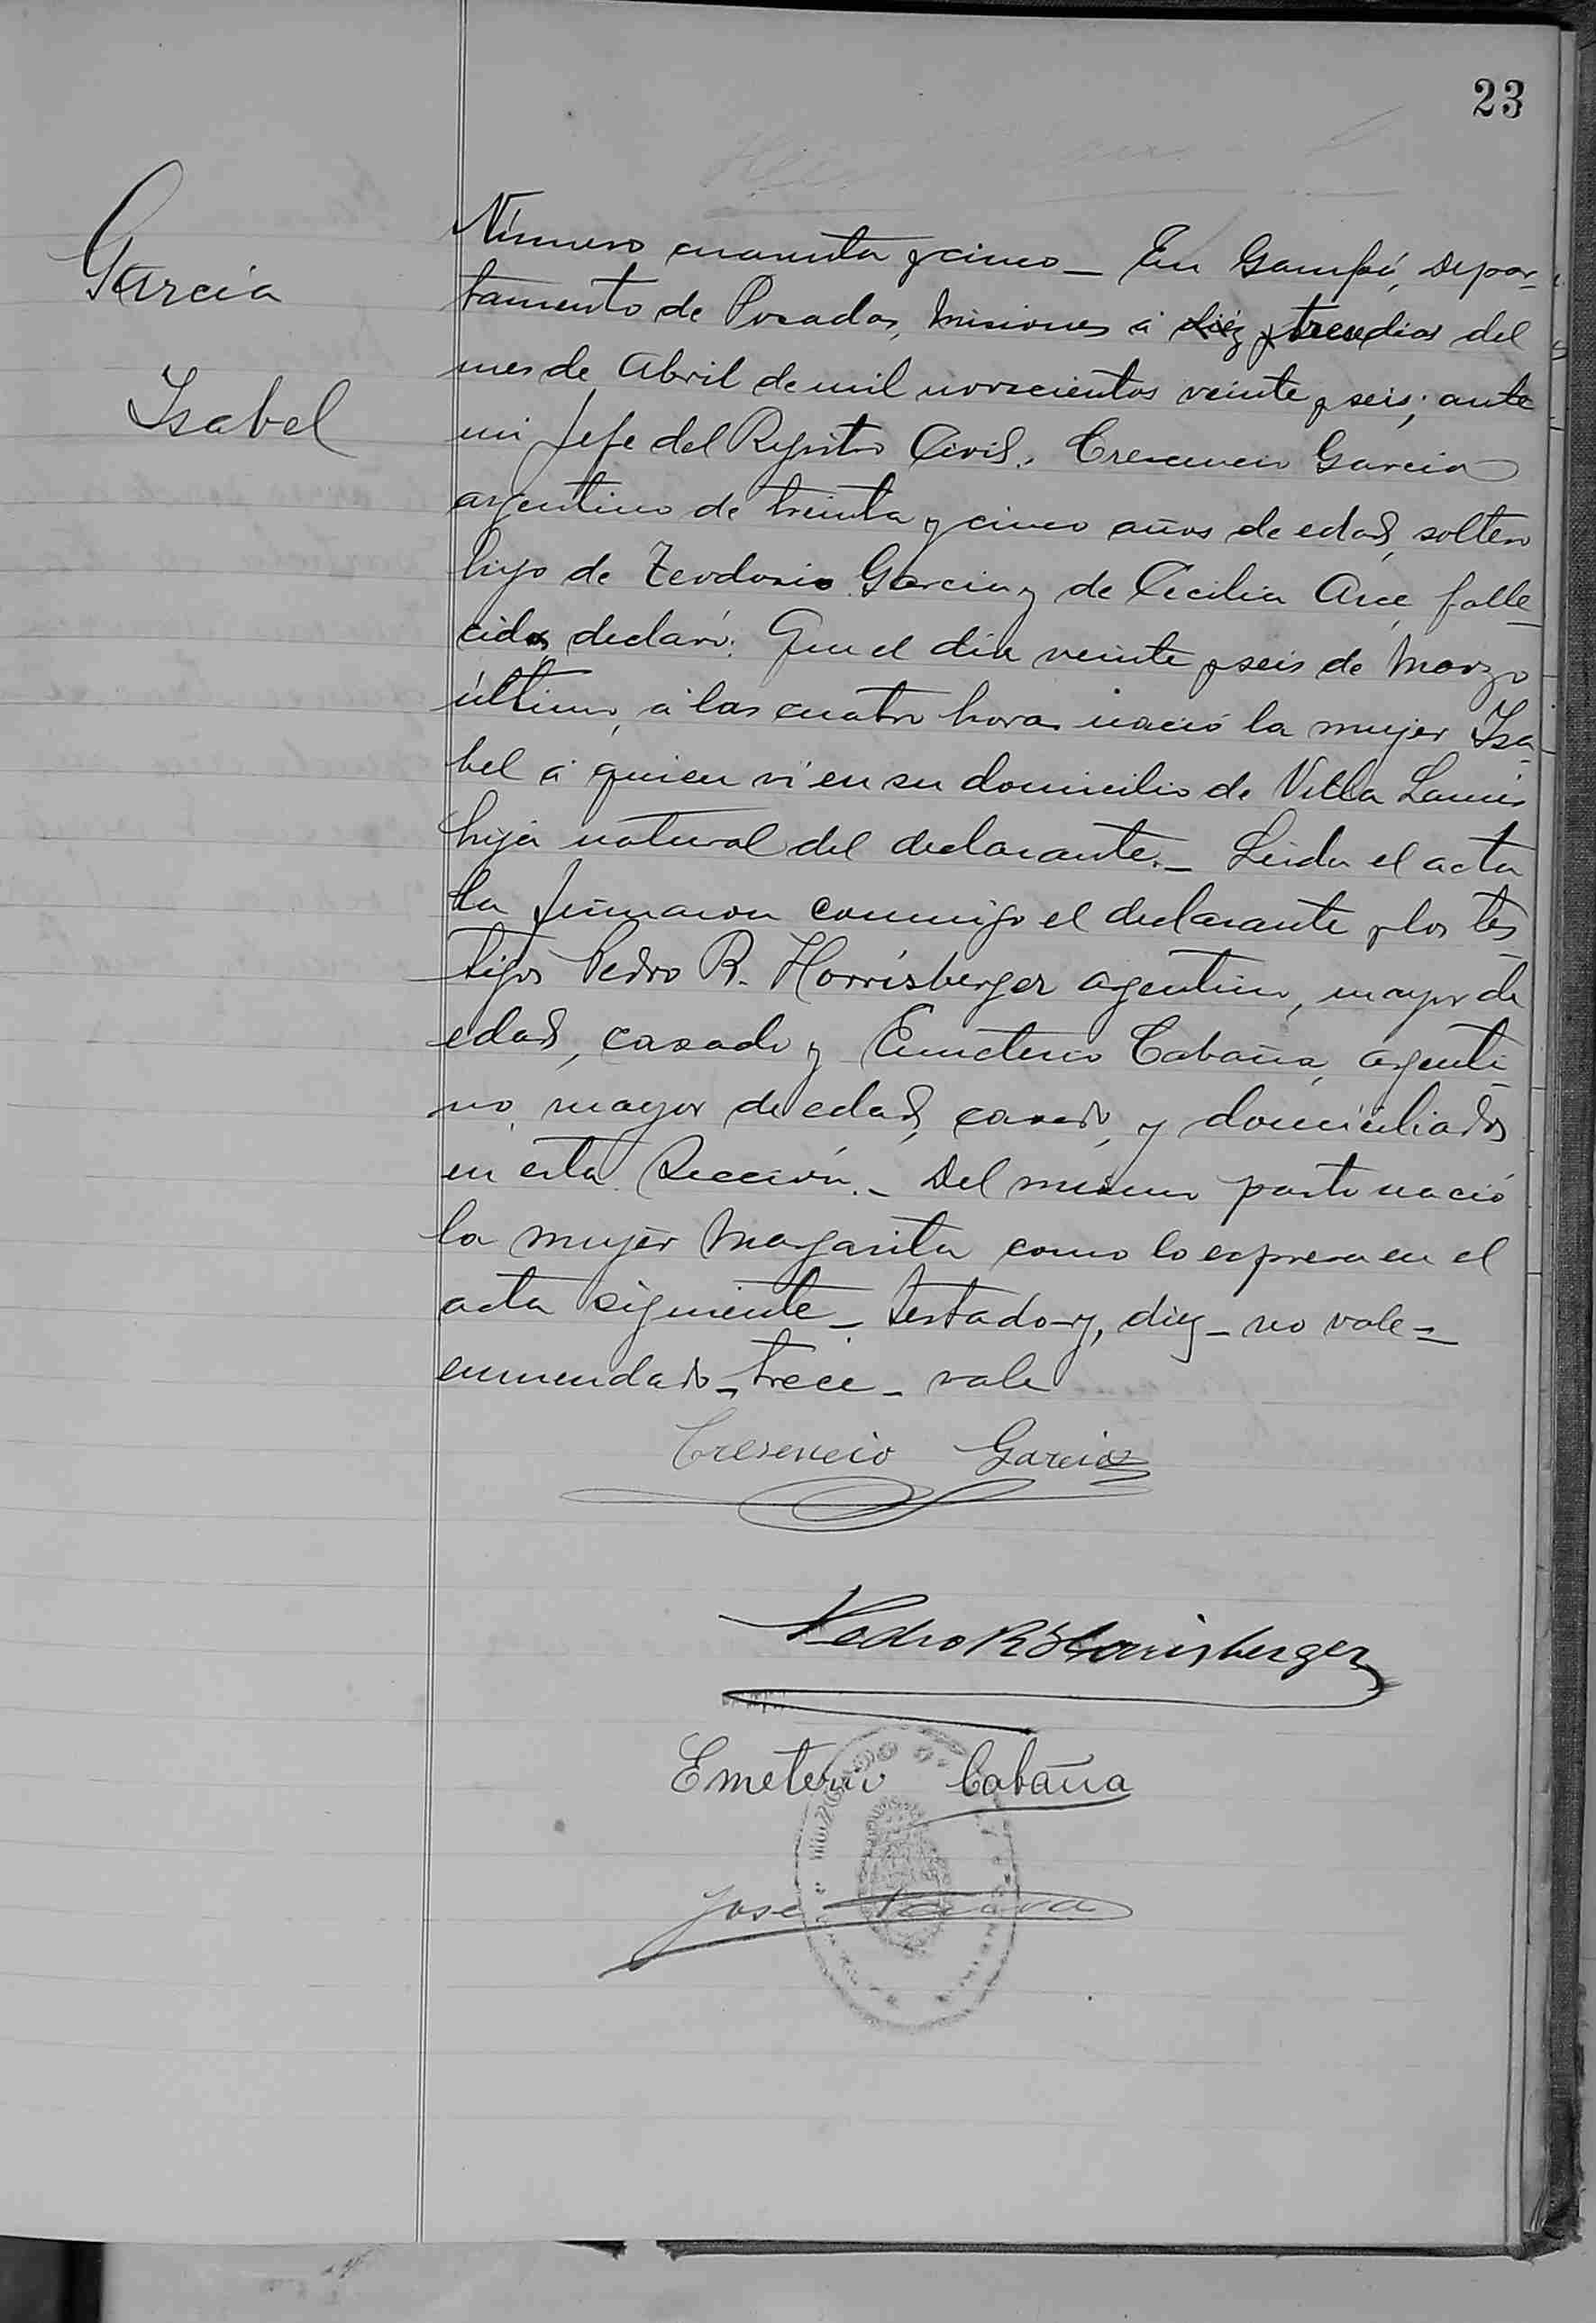 23
Garcia
Isabel
Número cuarenta y cinco_ En Garupá, Depar-
tamento de Posadas, Misiones á diéz y trece dias del
mes de Abril de mil novecientos veinte y seis; ante
mi Jefe del Registro Civil, Cresencio Garcia
argentino de treinta y cinco años de edad, soltero
hijo de Teodosio Garcia y de Cecilia Arce, falle-
cidos, declaró: Que el dia veinte y seis de Marzo
último, á las cuatro horas nació la mujer Isa-
bel á quien ví en su domicilio de Villa Lanús
hija natural del declarante._ Leida el acta
la firmaron conmigo el declarante y los tes-
tigos Pedro R. Horrisberger argentino, mayor de
edad, casado y Emeterio Cabaña, argenti-
no, mayor de edad, casado, y domiciliados
en esta Sección._ Del mismo parto nació
la mujer Margarita como lo expresa en el
acta siguiente_ Testado-y, diez_ no vale=
enmendado_trece_ vale
Cresencio Garcia
Pedro R Horrisberger
Emeterio Cabaña
José